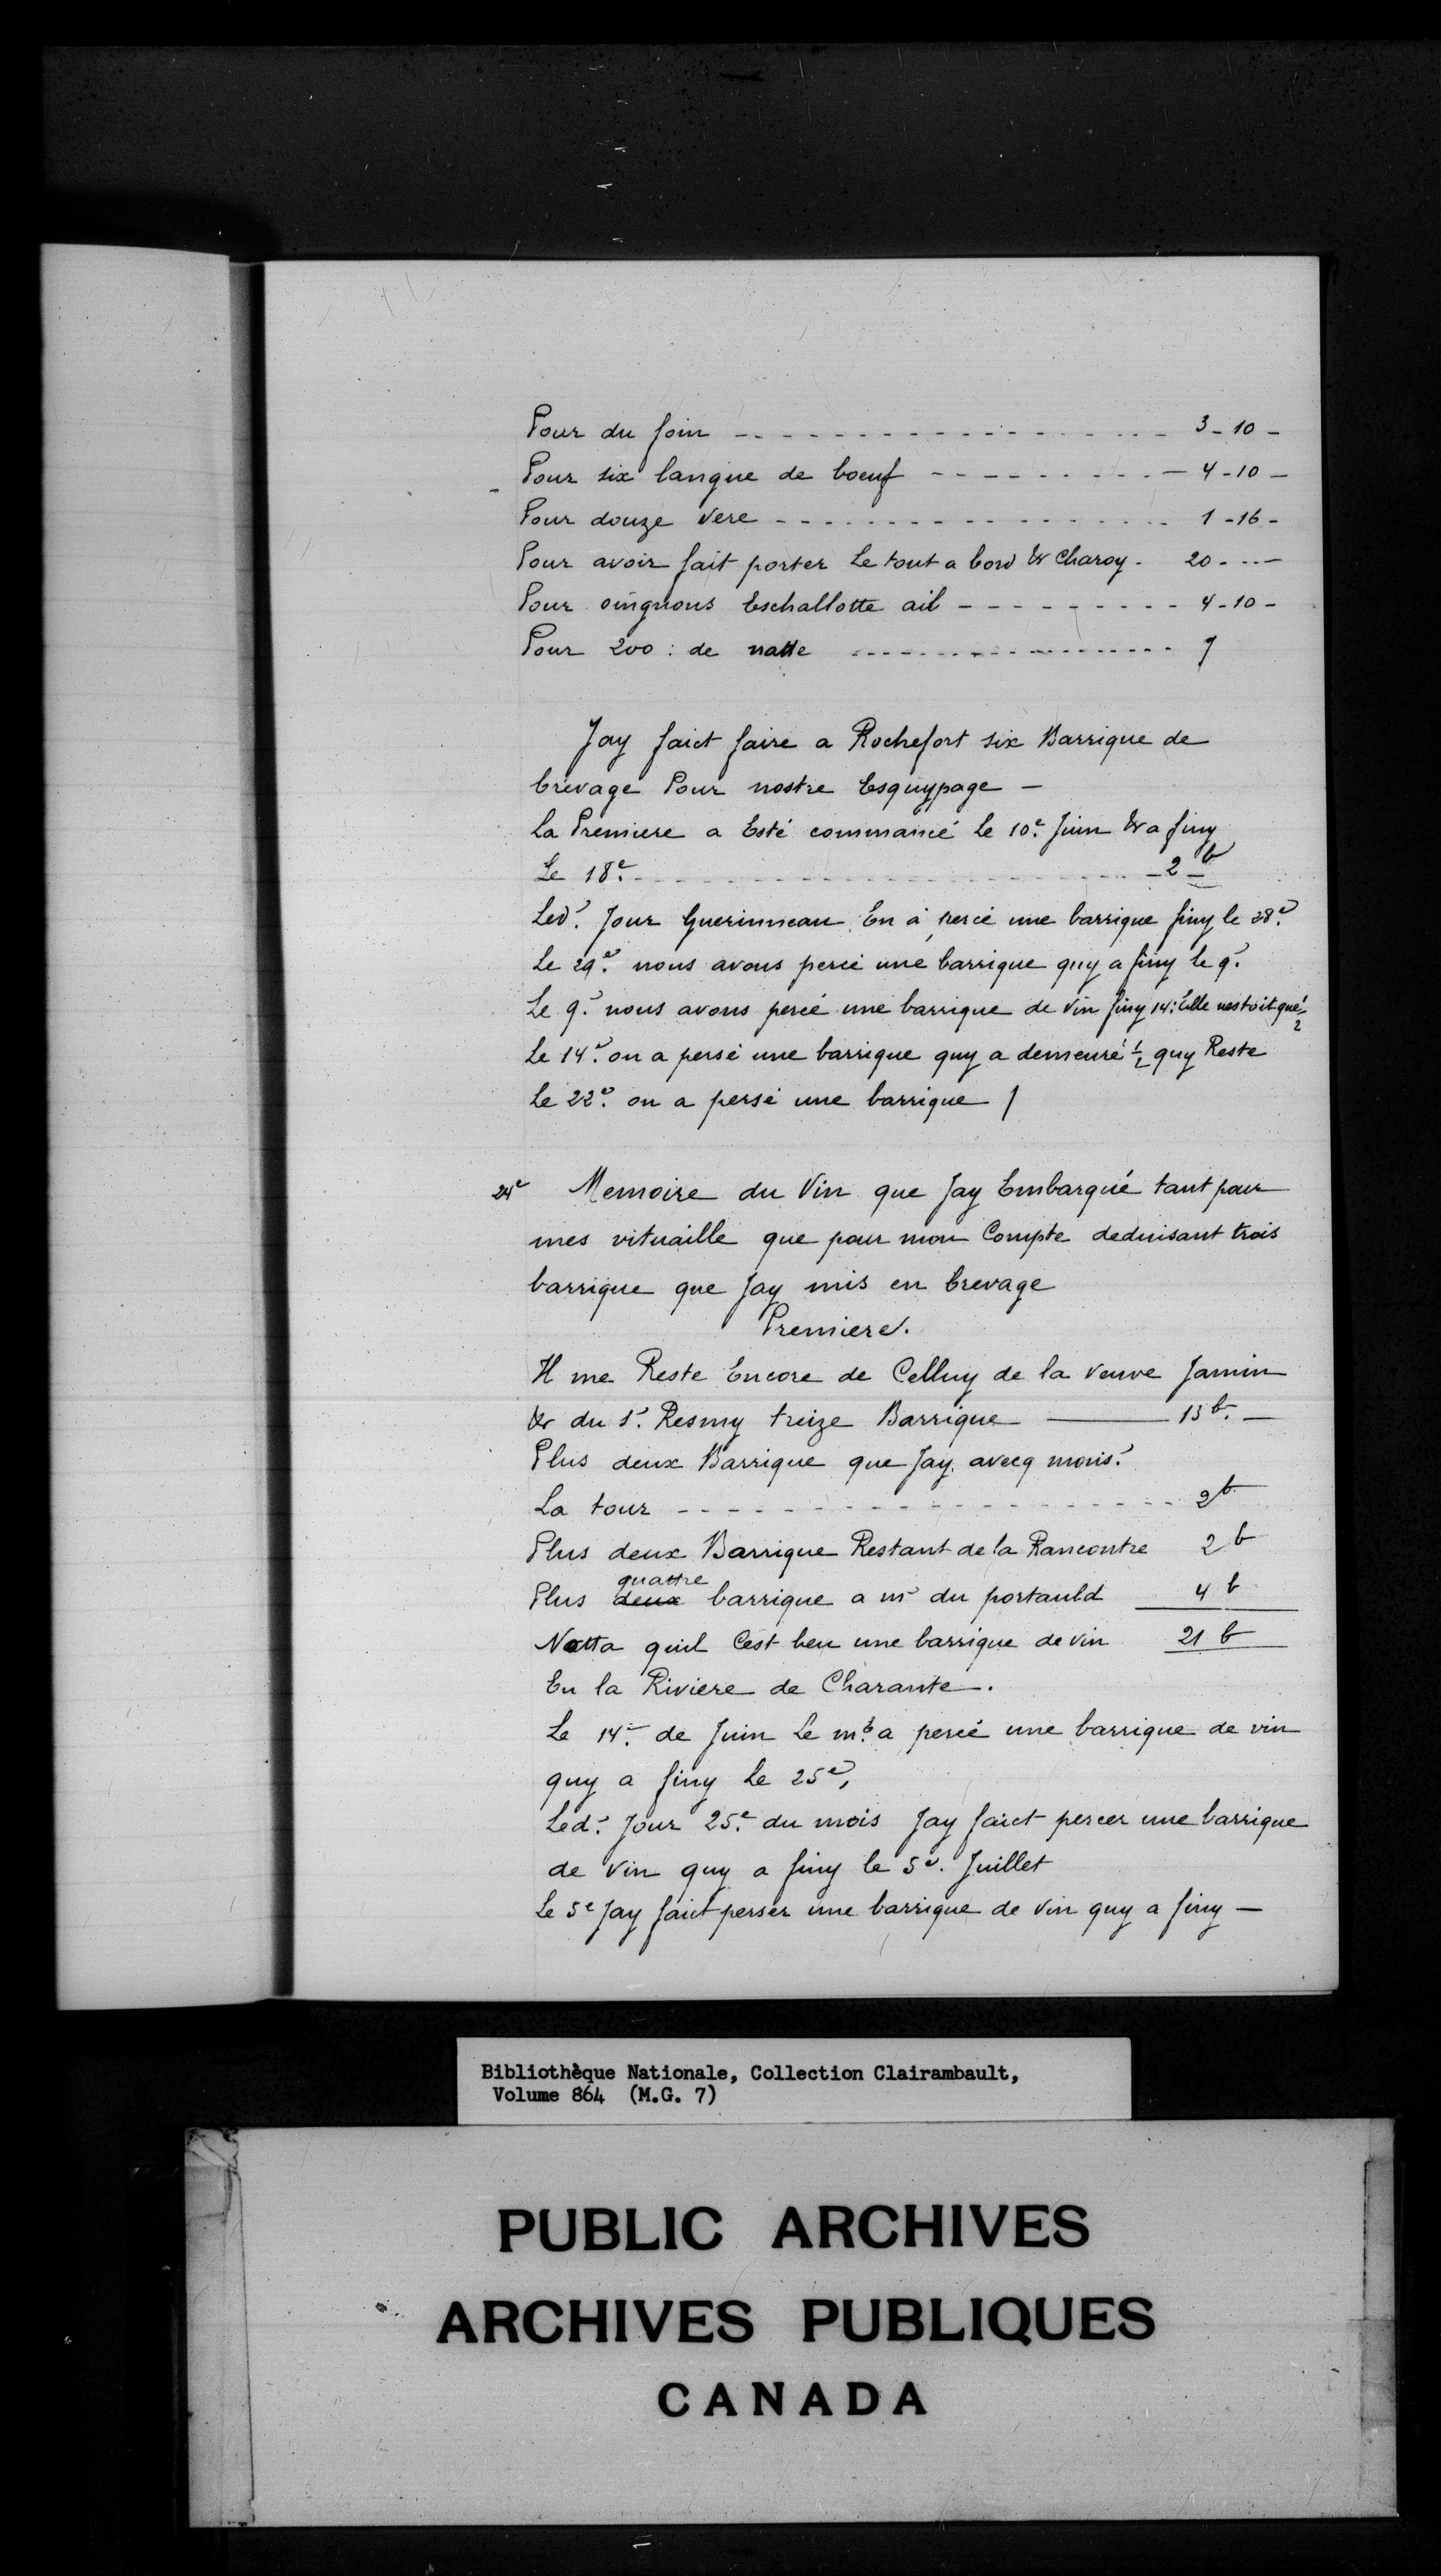 Pour du foin - - - - - - - - 3 - 10 -
Pour six langue de boeuf - - - - - - - - 4 - 10 -
Pour douze vere - - - - - - - - 1 - 16 -
Pour avoir fait porter Le tout a bord & Charoy - 20 - - -
Pour oingnons Eschallotte ail - - - - - - - - 4 - 10 -
Pour 200 : de natte - - - - - - - - 7
Jay faict faire a Rochefort six Barrique de
brevage Pour nostre Esquypage -
La Premiere a Esté commancé Le 10e. Juin & a finy
Le 18e. - - - - - - - - 2 b
Led. Jour Guerinneau En a percé une barrique finy le 28e.
Le 29e. nous avons percé une barrique quy a finy le 9.
Le 9. nous avons percé une barrique de Vin finy 14: Elle nestoit que 1/2
Le 14e. on a persé une barrique quy a demeuré 1/2 quy Reste
Le 22e. on a persé une barrique /
24e Memoire du Vin que Jay Embarqué tant pour
mes vituaille que pour mon Compte deduisant trois
barrique que Jay mis en brevage
Premiere.
Il me Reste Encore de Celluy de la veuve Jamin
& du S. Resmy treize Barrique ——— 13 b. —
Plus deux Barrique que Jay avecq mons.
La tour - - - - - - - - 2 b
Plus deux Barrique Restant de la Rancontre 2 b
quattre
Plus deux barrique a mr du portauld 4 b
Notta quil Cest beu une barrique de vin 21 b
En la Riviere de Charante.
Le 14e. de Juin Le me. a percé une barrique de vin
quy a finy Le 25e,
Led. Jour 25e. du mois Jay faict percer une barrique
de Vin quy a finy le 5e. Juillet
Le 5e Jay faict perser une barrique de Vin quy a finy —
Bibliothèque Nationale, Collection Clairambault,
Volume 864 (M.G. 7)
PUBLIC ARCHIVES
ARCHIVES PUBLIQUES
CANADA